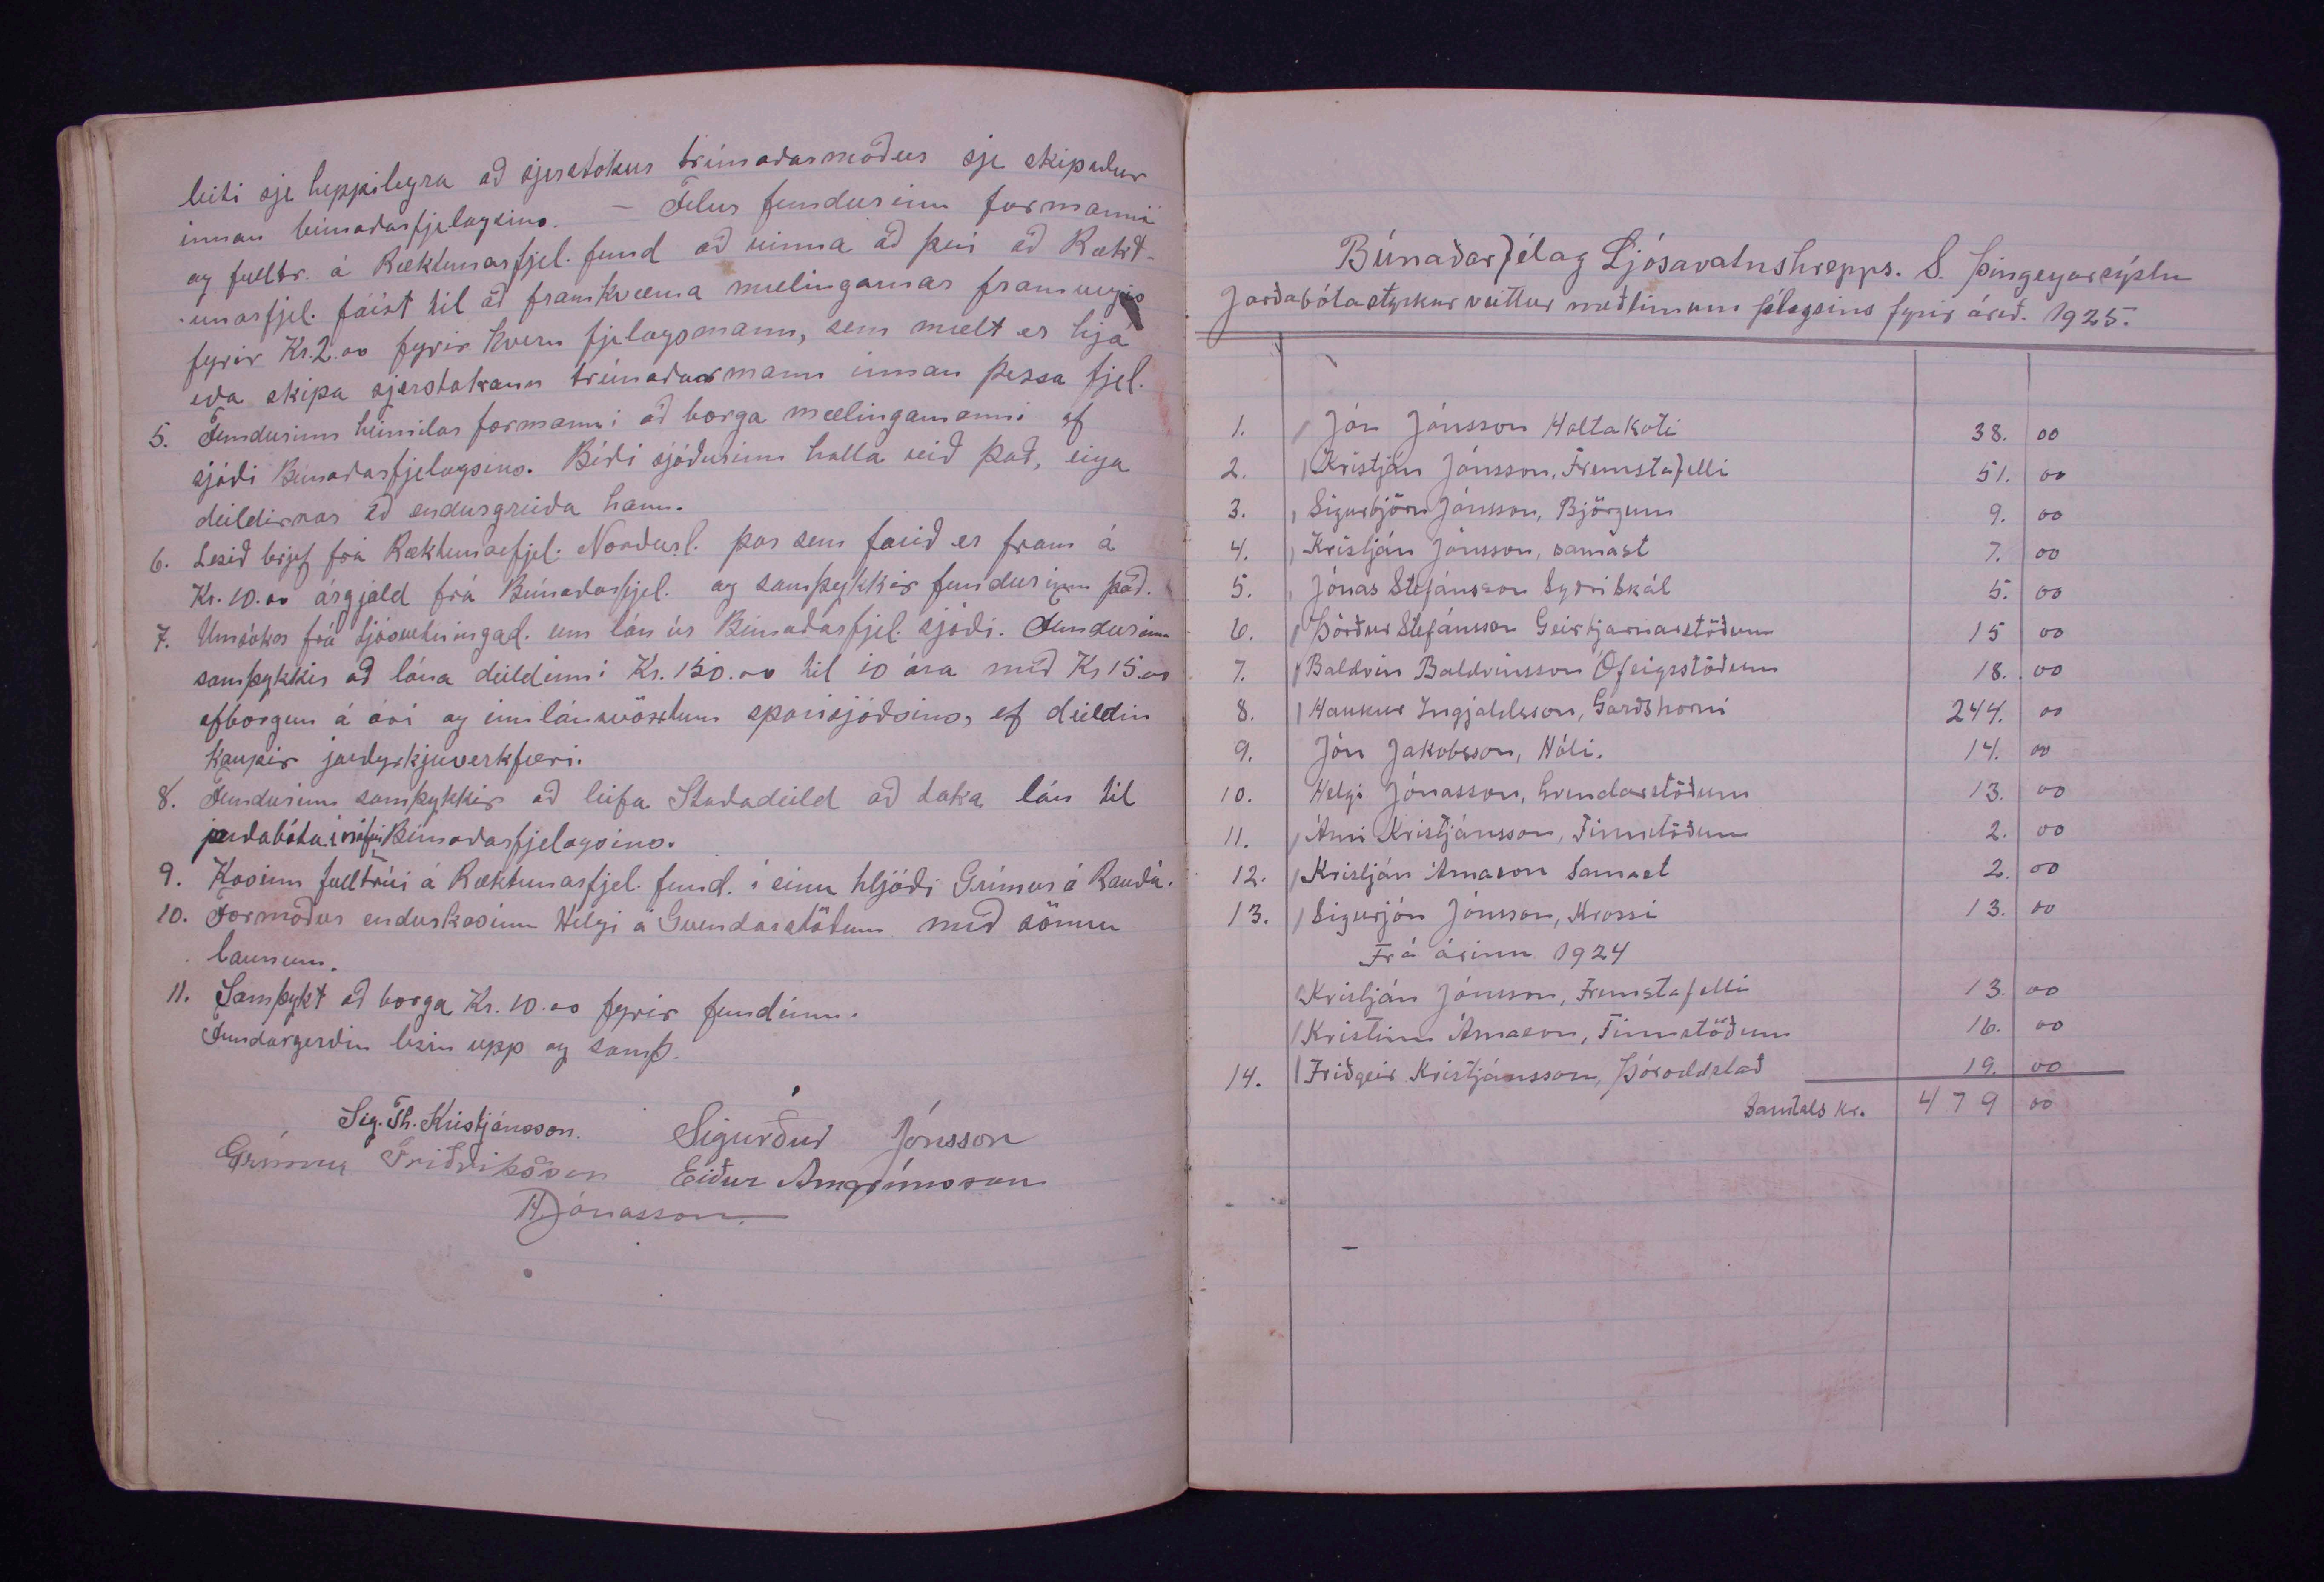 leiti sje heppilegra að sjerstökur trúnaðarmaður sje skipaður
innan búnaðarfjelagsins. – Felur fundurinn formanni
og fulltr. á Ræktunarfjel. fund að vinna að því að Rækt-
unarfjel. fáist til að framkvæma mælingarnar framvegis
fyrir Kr. 2.00 fyrir hvern fjelagsmann, sem mælt er hjá
eða skipa sjerstakann trúnaðarmann innan þessa fjel.
5. Fundurinn heimilar formanni að borga mælingamanni af
sjóði Búnaðarfjelagsins. Bíði sjóðurinn halla við það, eiga
deildirnar að endurgreiða hann.
6. Lesið brjef frá Ræktunarfjel. Norðurl. þar sem farið er fram á
Kr. 10.00 árgjald frá Búnaðarfjel. og samþykkir fundurinn það.
7. Umsókn frá Ljósvetningad. um lán úr Búnaðarfjel. sjóði. Fundurinn
samþykkir að lána deildinni Kr. 150.00 til 10 ára með Kr 15.00
afborgun á ári og innlánsvöxtum sparisjóðsins, ef deildin
kaupir jarðyrkjuverkfæri.
8. Fundurinn samþykkir að leifa Staðadeild að taka lán til
jarðabóta í nafni Búnaðarfjelagsins.
9. Kosinn fulltrúi á Ræktunarfjel. fund. í einu hljóði Grímur á Rauðá.
10. Formaður endurkosinn Helgi á Gvendarstöðum með sömu
launum.
11. Samþykt að borga Kr. 10.00 fyrir fundinn.
Fundargerðin lesin upp og samþ.
Sig. Th. Kristjánsson. Sigurður Jónsson
Grímur Friðriksson Eiður Arngrímsson
H Jónasson.
Búnaðarfélag Ljósavatnshrepps. S. Þingeyarsýslu
Jarðabótastyrkur veittur meðlimum félagsins fyrir árið. 1925.
1. Jón Jónsson Holtakoti 38. 00
2. Kristján Jónsson, Fremstafelli 51. 00
3. Sigurbjörn Jónsson, Björgum 9. 00
4. Kristján Jónsson, samast 7. 00
5. Jónas Stefánsson Syðri Skál 5. 00
6. Þórður Stefánsson Geirbjarnarstöðum 15 00
7. Baldvin Baldvinsson Ófeigsstöðum 18. 00
8. Haukur Ingjaldsson, Garðshorni 244. 00
9. Jón Jakobsson, Hóli. 14. 00
10. Helgi Jónasson, Gvendarstöðum 13. 00
11. Árni Kristjánsson, Finnstöðum 2. 00
12. Kristján Árnason Samast 2. 00
13. Sigurjón Jónsson, Krossi 13. 00
Frá árinu 1924
Kristján Jónsson, Fremstafelli 13. 00
Kristinn Árnason, Finnstöðum 16. 00
14. Friðgeir Kristjánsson, Þóroddstað 19. 00
Samtals kr. 479 00